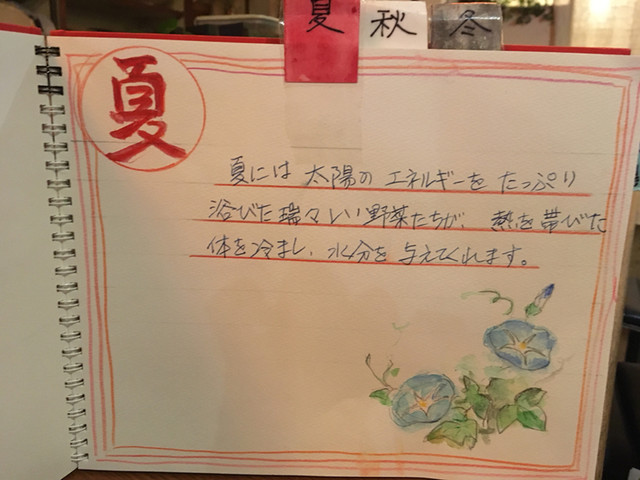 夏 秋 冬
夏
夏には太陽のエネルギーをたっぷり
浴びた瑞々しい野菜たちが、熱を帯びた
体を冷まし、水分を与えてくれます。